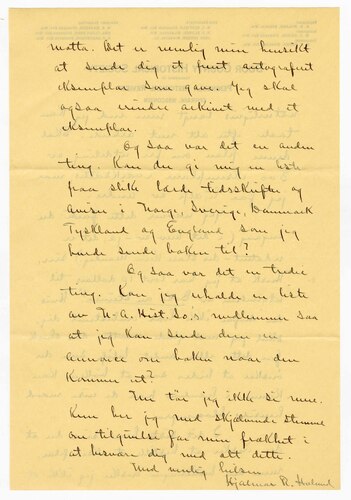 motta. Det er nemlig min hensikt
at sende dig it frit autografert
eksemplar som gave. Jeg skal
ogsaa erindre arkivet med it
eksemplar.
Og saa var det en anden
ting. Kan du gi mig en liste
paa slike lærde tidsskrifter og
aviser i Norge, Sverige, Danmark
Tyskland og England som jeg
burde sende boken til?
Og saa var det en tredie
ting. Kan jeg erholde en liste
av N. A. Hist. So.s medlemmer saa
at jeg kan sende dem en
annonce om boken naar den
kommer ut?
Nu tør jeg ikke si mere.
Kun ber jeg med skjælvende stemme
om tilgivelse for min frækhet i
at besvære dig med alt dette.
Med venlig hilsen
Hjalmar R. Holand